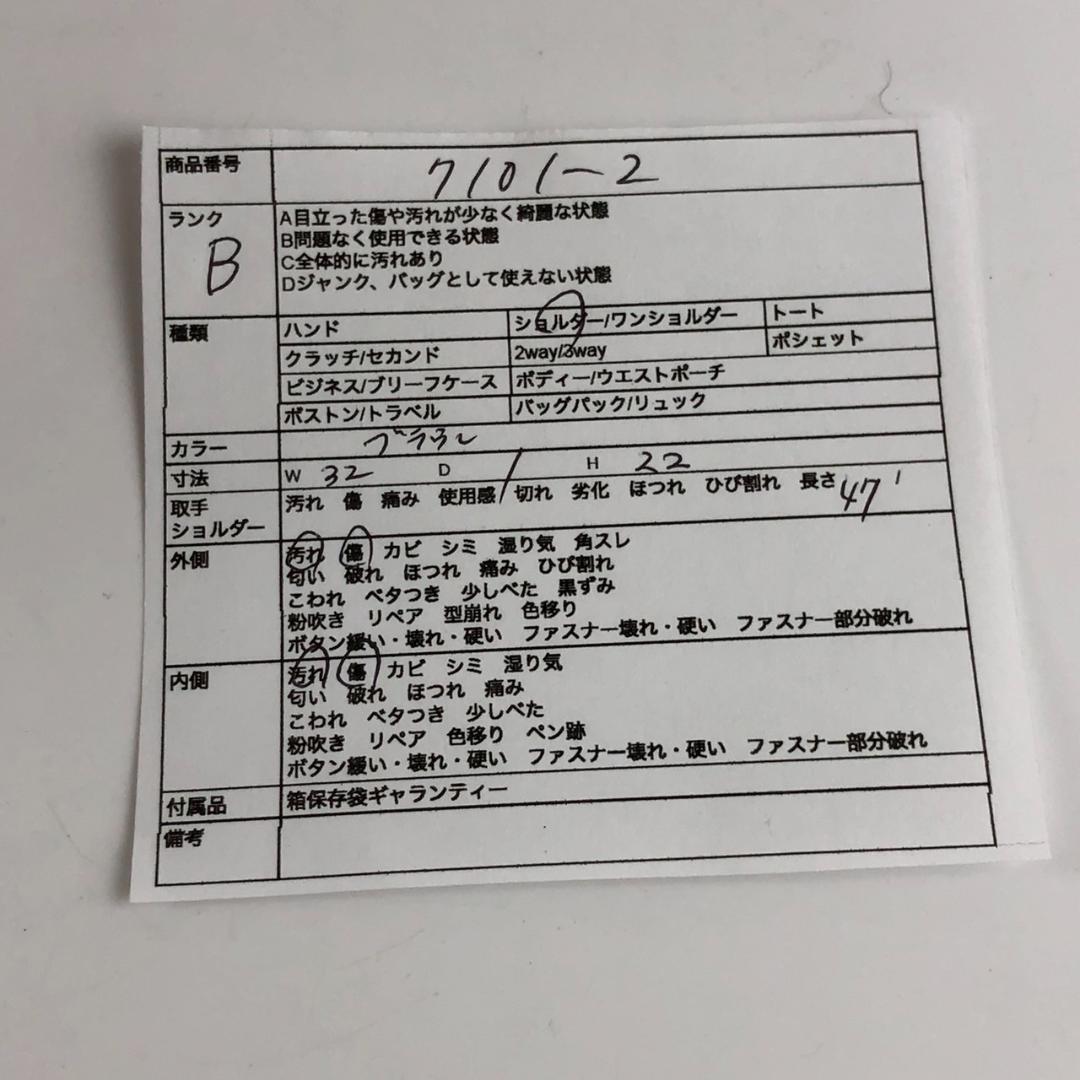 商品番号 7101-2
ランク B
A目立った傷や汚れが少なく綺麗な状態
B問題なく使用できる状態
C全体的に汚れあり
Dジャンク、バッグとして使えない状態
種類 ハンド ショルダー/ワンショルダー トート
クラッチ/セカンド 2way/3way ポシェット
ビジネス/ブリーフケース ボディー/ウエストポーチ
ボストン/トラベル バッグパック/リュック
カラー ブラウン
寸法 W 32 D / H 22
取手 汚れ 傷 痛み 使用感 切れ 劣化 ほつれ ひび割れ 長さ 47
ショルダー
外側 汚れ 傷 カビ シミ 湿り気 角スレ
匂い 破れ ほつれ 痛み ひび割れ
こわれ ベタつき 少しべた 黒ずみ
粉吹き リペア 型崩れ 色移り
ボタン緩い・壊れ・硬い ファスナー壊れ・硬い ファスナー部分破れ
内側 汚れ 傷 カビ シミ 湿り気
匂い 破れ ほつれ 痛み
こわれ ベタつき 少しべた
粉吹き リペア 色移り ペン跡
ボタン緩い・壊れ・硬い ファスナー壊れ・硬い ファスナー部分破れ
付属品 箱保存袋ギャランティー
備考